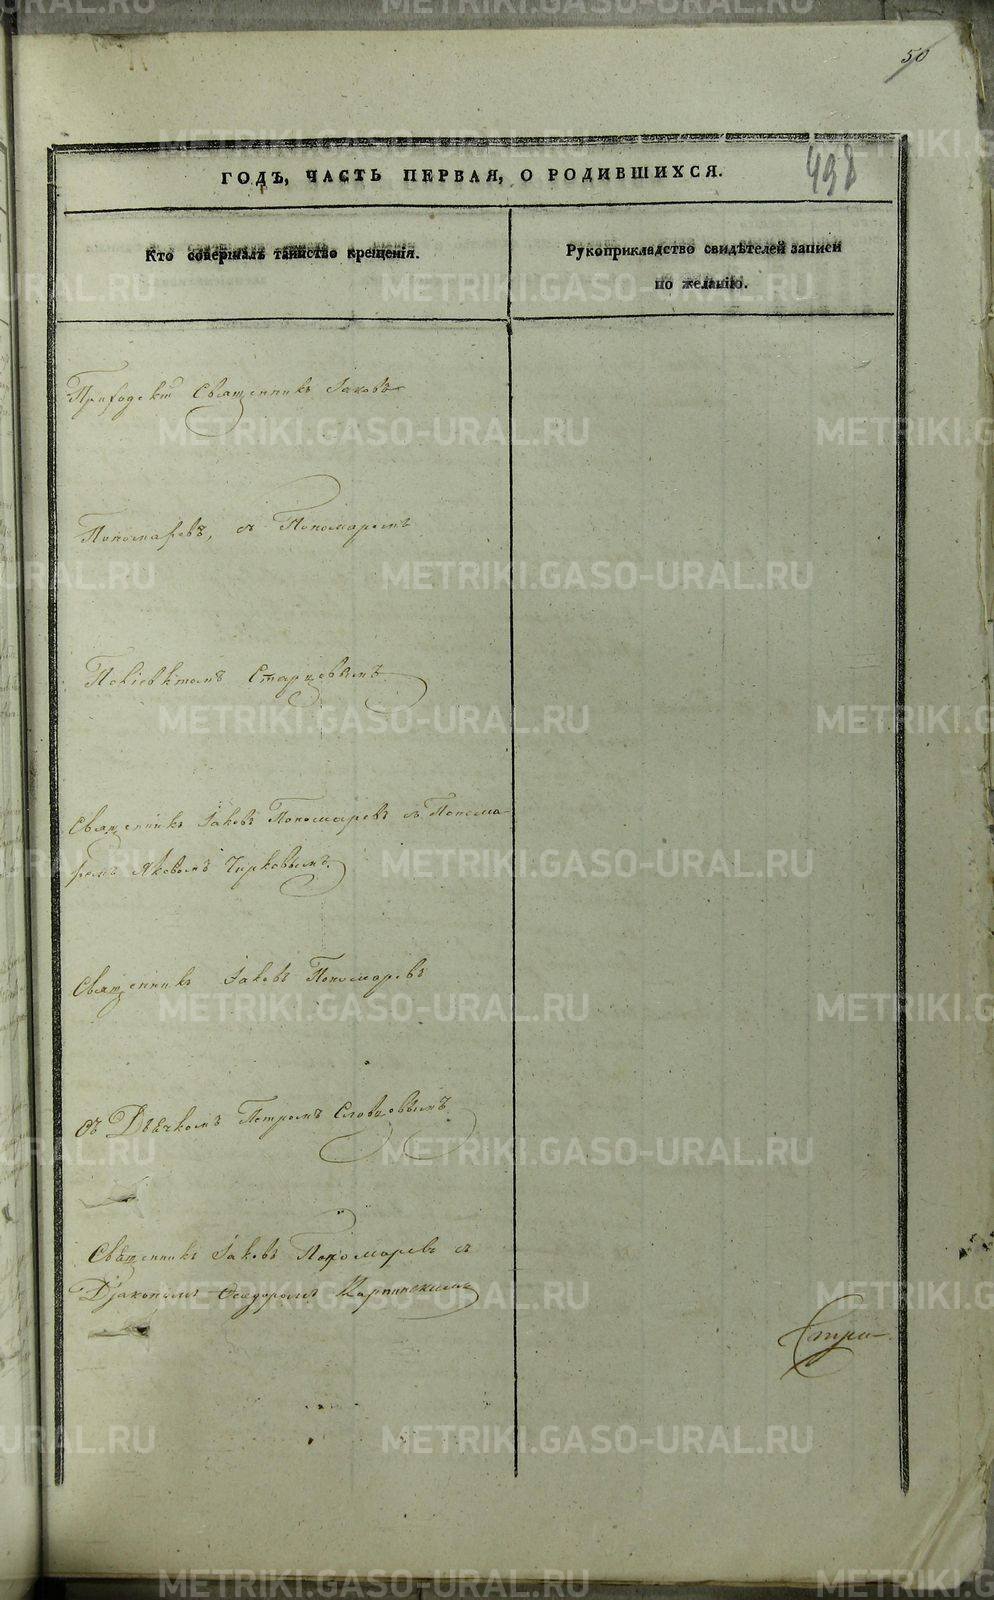 50
498
ГОДЪ, ЧАСТЬ ПЕРВАЯ, О РОДИВШИХСЯ.
Кто совершалъ таинство крещенія.
Рукоприкладство свидѣтелей записи
по желанію.
Священникъ Іаковъ
Пономаревъ, съ Пономаремъ
Полiевктомъ Старцовымъ.
Священникъ Іаковъ Пономаревъ съ Понома-
ремъ Яковомъ Чирковымъ.
Священникъ Іаковъ Пономаревъ
съ Дьячкомъ Петромъ Словцовымъ.
Священникъ Іаковъ Пономаревъ съ
Діакономъ Феодоромъ Карпинскимъ
METRIKI.GASO-URAL.RU